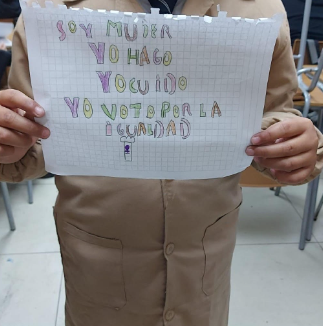 SOY MUJER
YO HAGO
YO CUIDO
YO VOTO POR LA
IGUALDAD